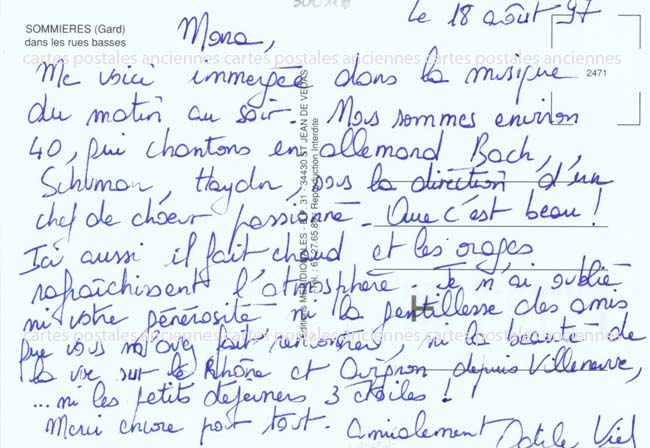 SOMMIERES (Gard)
dans les rues basses
le 18 août 97
Mona,
cartes postales anciennes cartes postales anciennes cartes postales anciennes
2471
Me voici immergée dans la musique
du matin au soir. Nous sommes environ
40, qui chantons en allemand Bach,
Schuman, Haydn, sous la direction d'un
chef de chœur passionné. Que c'est beau !
Ici aussi il fait chaud et les orages
rafraîchissent l'atmosphère. Je n'ai oublié
ni votre générosité ni la gentillesse des amis
que vous m'avez fait rencontrer, ni la beauté de
la vue sur le Rhône et Avignon depuis Villeneuve,
... ni les petits dejeuners 3 étoiles !
Merci encore pour tout. Amicalement
Editions MERIDIONALES - B.P. 31 - 34430 ST JEAN DE VEDAS
Reproduction Interdite
cartes postales anciennes cartes postales anciennes cartes postales anciennes